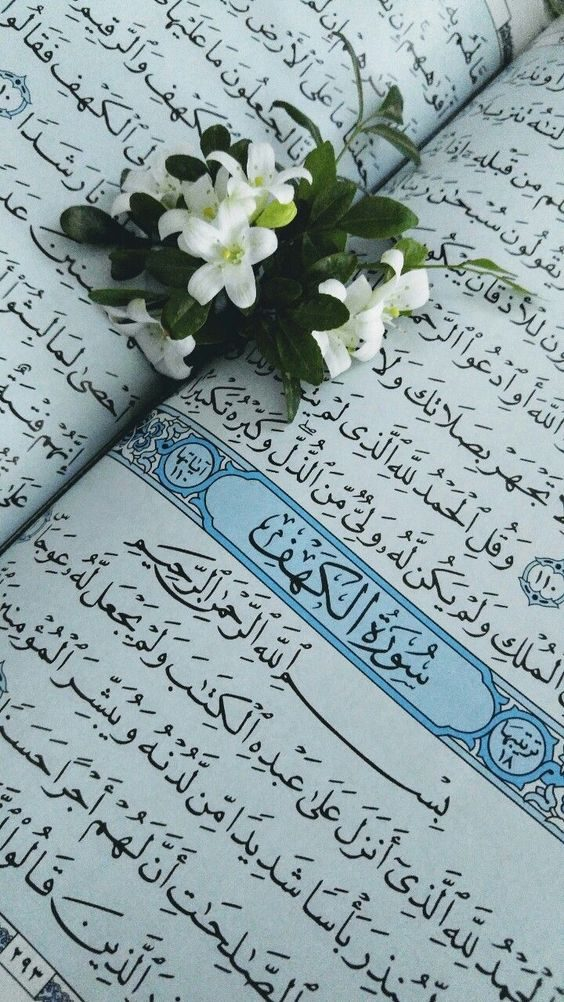 مِن قَبْلِهِۦٓ إِذَا
وَيَقُولُونَ سُبْحَٰنَ رَبِّنَا
لِلْأَذْقَانِ يَبْكُونَ
ٱللَّهَ أَوِ ٱدْعُوا۟ ٱلرَّحْمَٰنَ
تَجْهَرْ بِصَلَاتِكَ وَلَا
١١٠ وَقُلِ ٱلْحَمْدُ لِلَّهِ ٱلَّذِى لَمْ
ٱلْمُلْكِ وَلَمْ يَكُن لَّهُۥ وَلِىٌّ مِّنَ ٱلذُّلِّ وَكَبِّرْهُ تَكْبِيرًا
ترتيبها ١٨ سُورَةُ الكَهْفِ آياتها ١١٠
بِسْمِ ٱللَّهِ ٱلرَّحْمَٰنِ ٱلرَّحِيمِ
ٱلْحَمْدُ لِلَّهِ ٱلَّذِىٓ أَنزَلَ عَلَىٰ عَبْدِهِ ٱلْكِتَٰبَ وَلَمْ يَجْعَل لَّهُۥ عِوَجَا
لِّيُنذِرَ بَأْسًا شَدِيدًا مِّن لَّدُنْهُ وَيُبَشِّرَ ٱلْمُؤْمِنِينَ
ٱلصَّٰلِحَٰتِ أَنَّ لَهُمْ أَجْرًا حَسَنًا
ٱلَّذِينَ قَالُوا۟
٢٩٣
لَهُم بِهِۦ
ءَاثَٰرِهِمْ إِن
مَا عَلَى ٱلْأَرْضِ
لَجَٰعِلُونَ مَا عَلَيْهَا
ٱلْكَهْفِ وَٱلرَّقِيمِ
إِلَى ٱلْكَهْفِ فَقَالُوا۟
١٠
رَشَدًا
سِنِينَ عَدَدًا
أَحْصَىٰ لِمَا لَبِثُوٓا۟
إِنَّهُمْ فِتْيَةٌ
عَلَىٰ